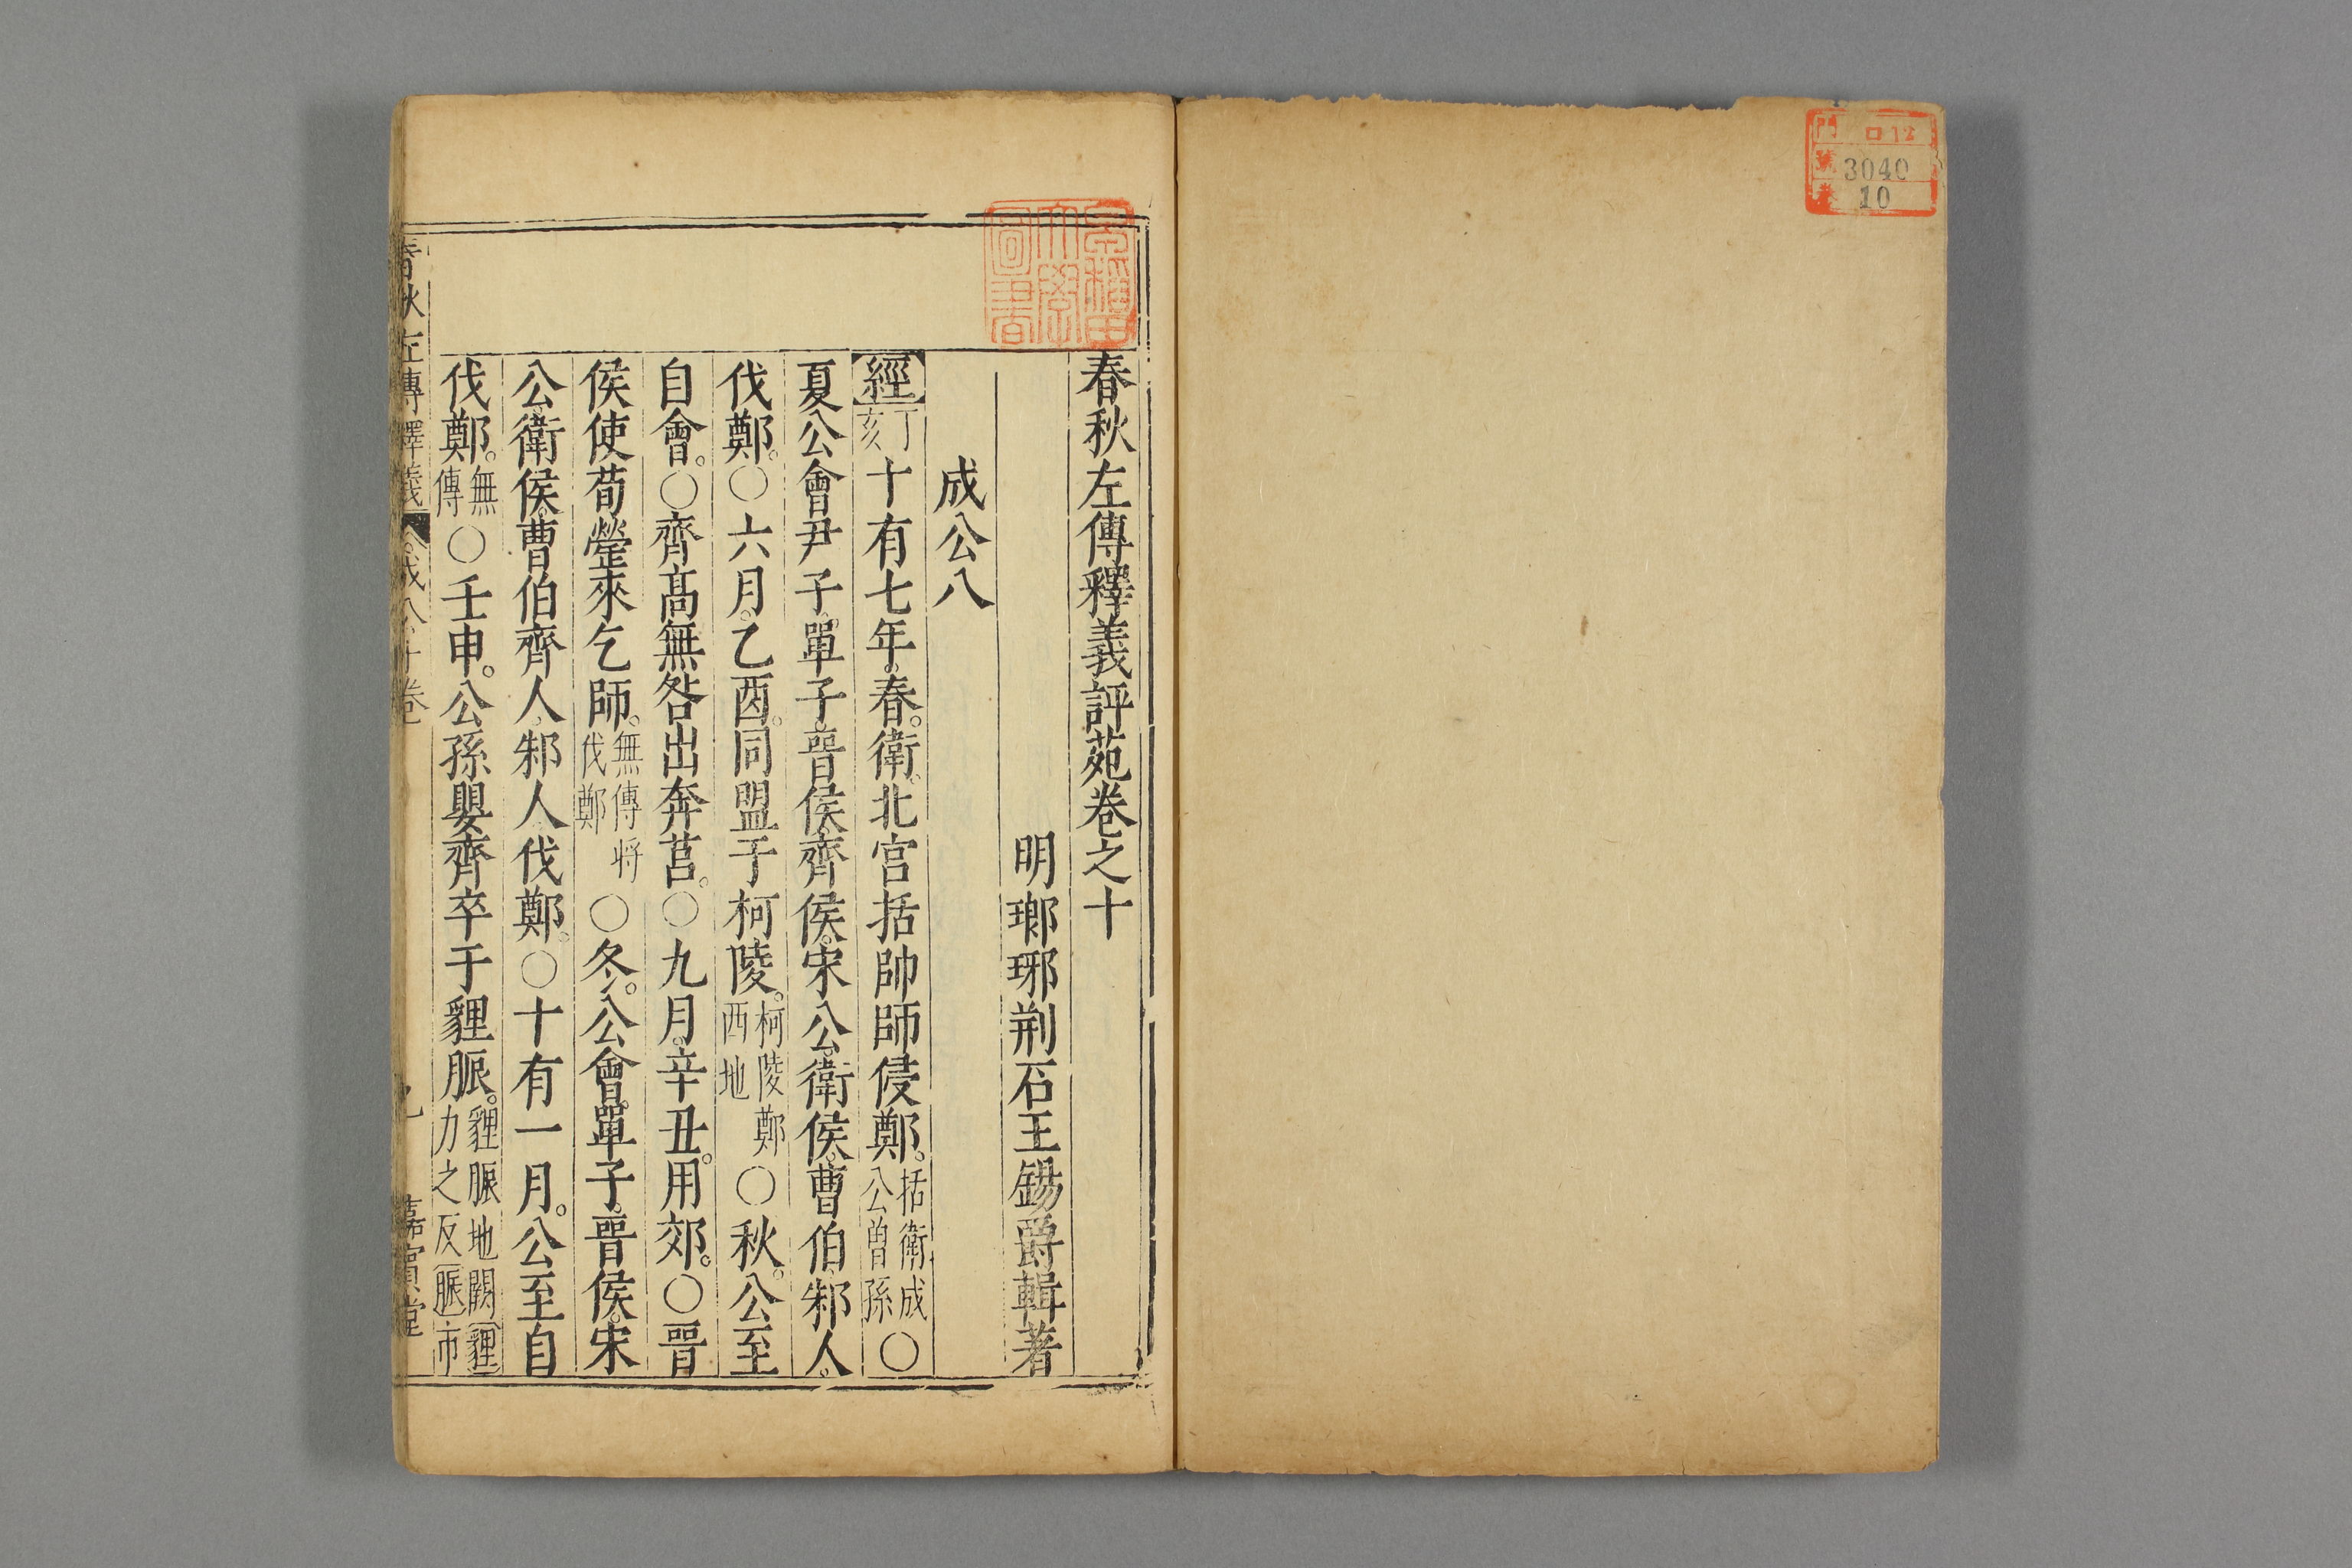 門 ロ12
號 3040
卷 10
早稲田大學圖書
春秋左傳釋義評苑卷之十
明瑯琊荆石王錫爵輯著
成公八
經丁亥十有七年春。衛北宮括帥師侵鄭。括衛成公曾孫○
夏公會尹子單子晉侯齊侯宋公衛侯曹伯邾人。
伐鄭。○六月乙酉。同盟于柯陵。柯陵鄭西地○秋。公至
自會。○齊髙無咎出奔莒。○九月辛丑。用郊。○晉
侯使荀罃來乞師。無傳將伐鄭○冬。公會單子晉侯宋
公衛侯曹伯齊人邾人伐鄭。○十有一月。公至自
伐鄭。無傳○壬申。公孫嬰齊卒于貍脤。貍脤地闕貍力之反脤市
春秋左傳釋義 成八十卷 嘉賓堂